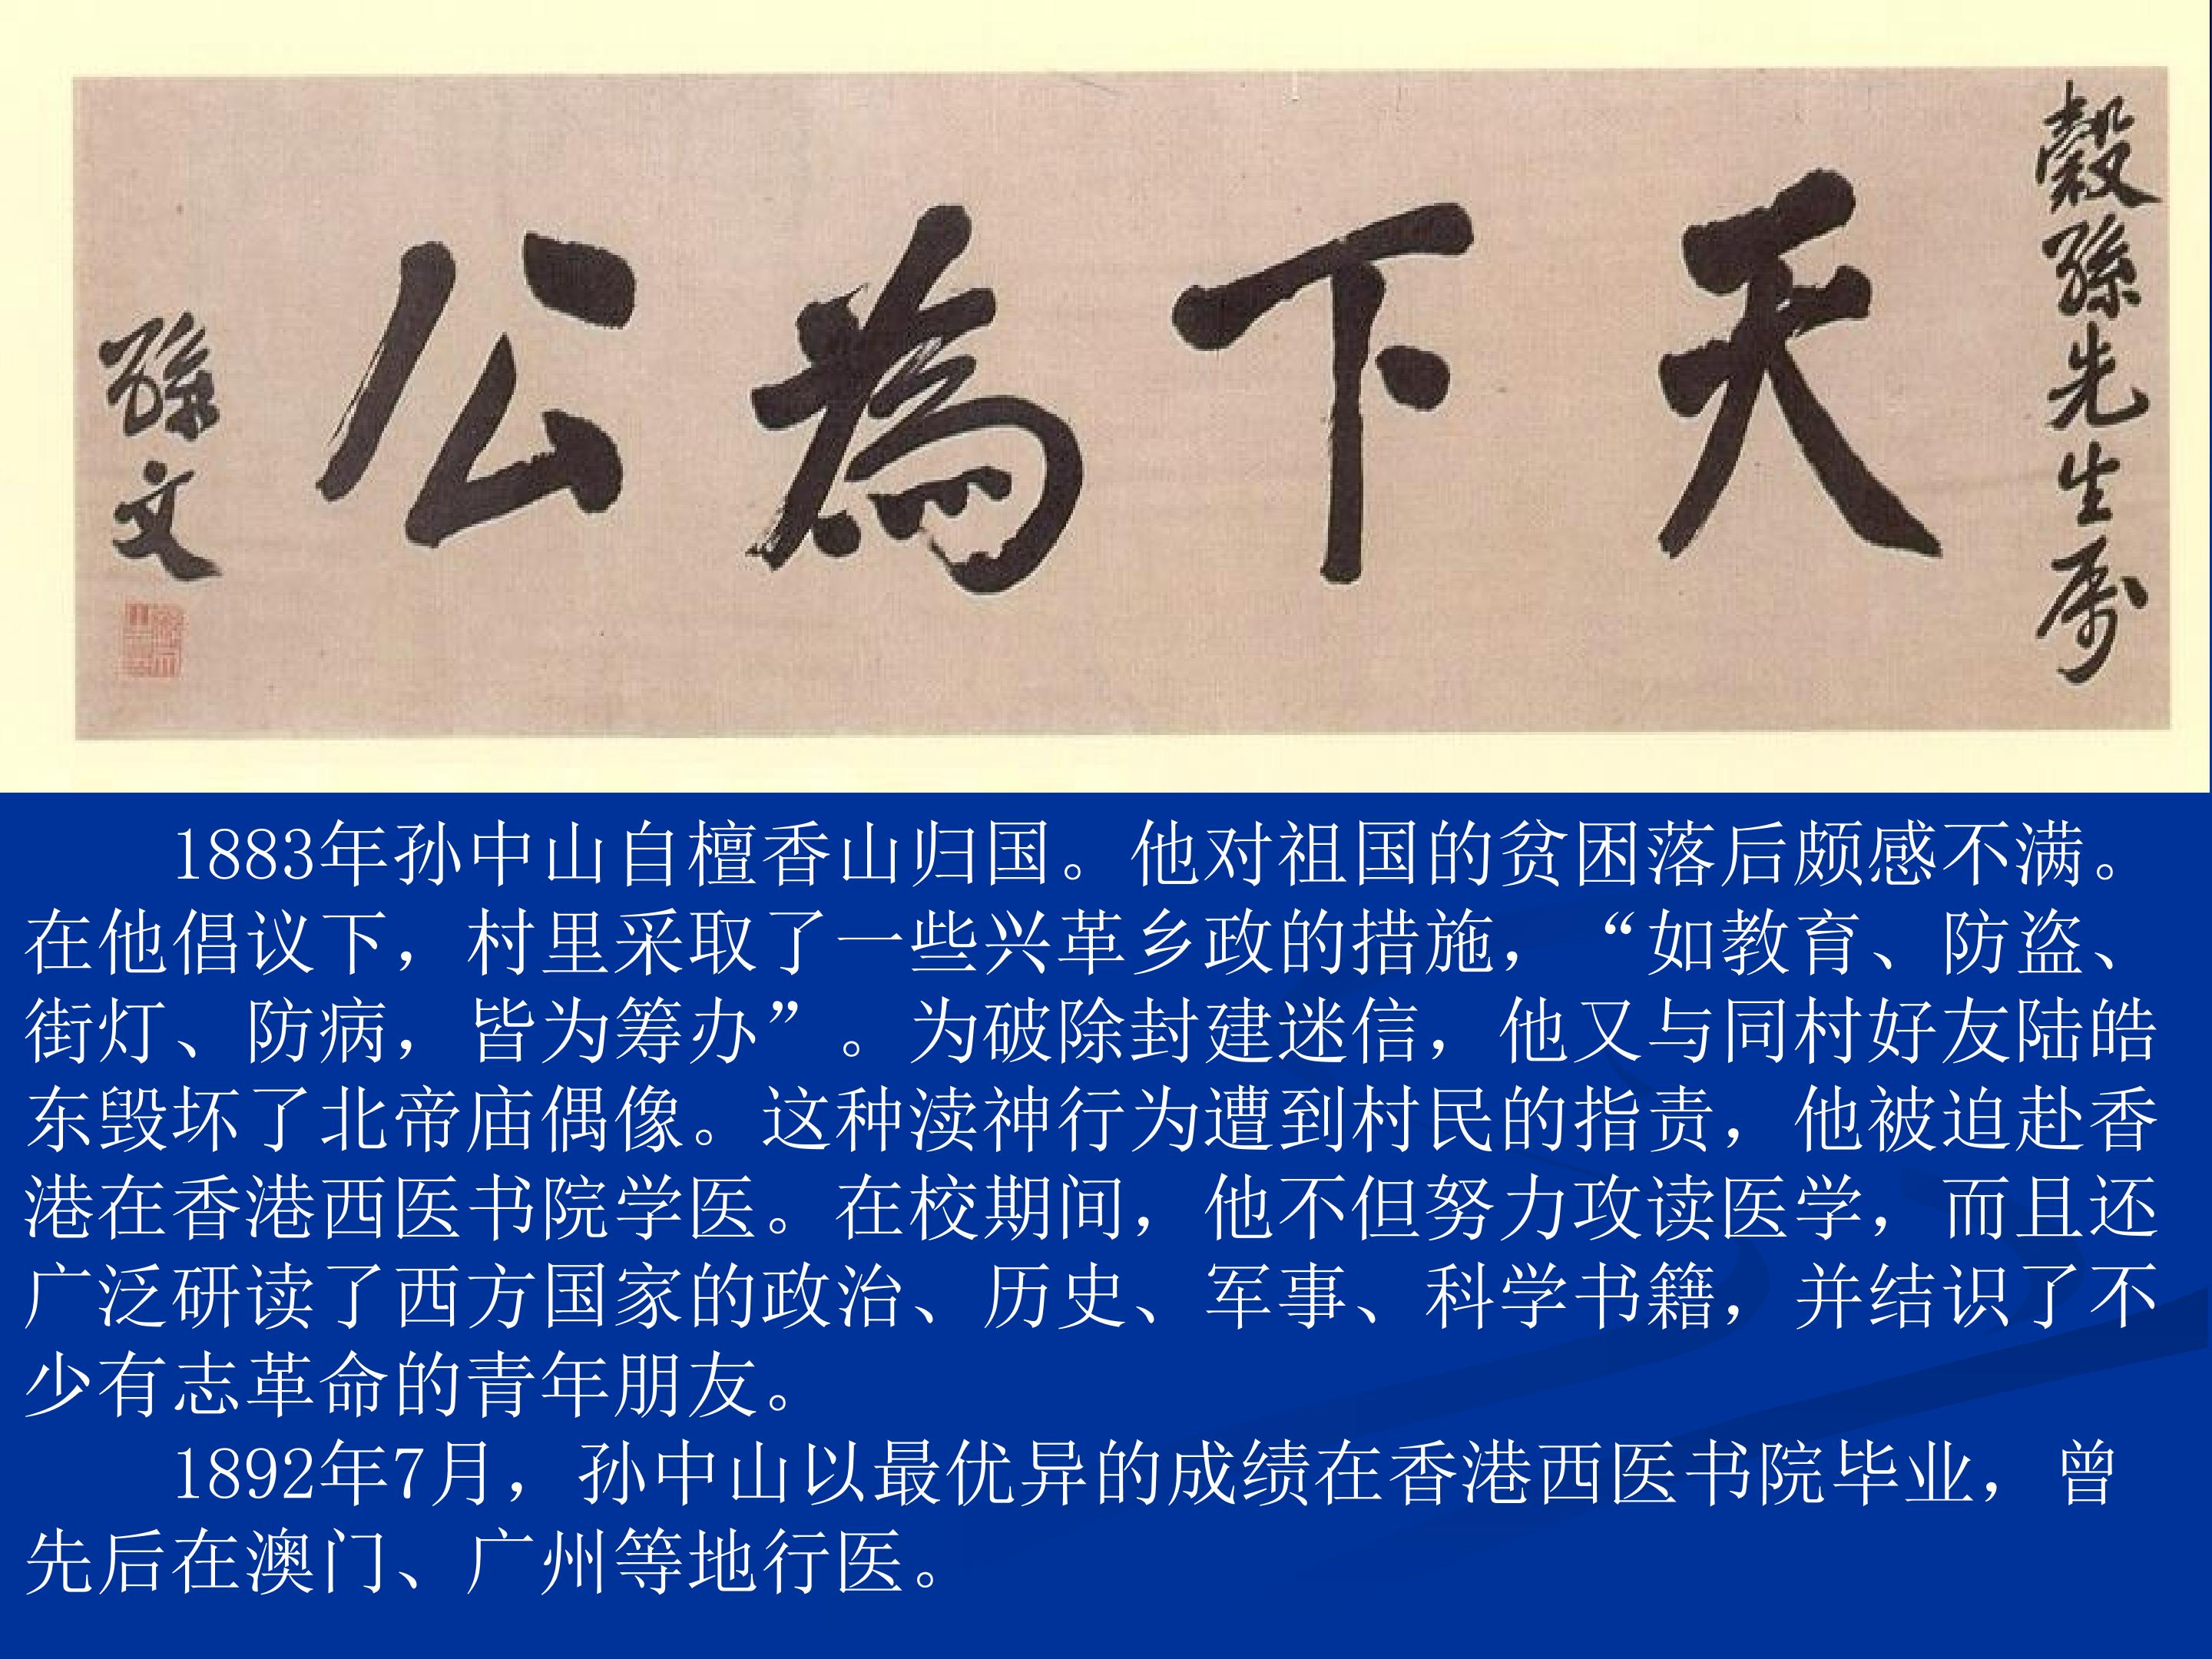 穀孫先生属
天下為公
孫文
1883年孙中山自檀香山归国。他对祖国的贫困落后颇感不满。
在他倡议下，村里采取了一些兴革乡政的措施，“如教育、防盗、
街灯、防病，皆为筹办”。为破除封建迷信，他又与同村好友陆皓
东毁坏了北帝庙偶像。这种渎神行为遭到村民的指责，他被迫赴香
港在香港西医书院学医。在校期间，他不但努力攻读医学，而且还
广泛研读了西方国家的政治、历史、军事、科学书籍，并结识了不
少有志革命的青年朋友。
1892年7月，孙中山以最优异的成绩在香港西医书院毕业，曾
先后在澳门、广州等地行医。